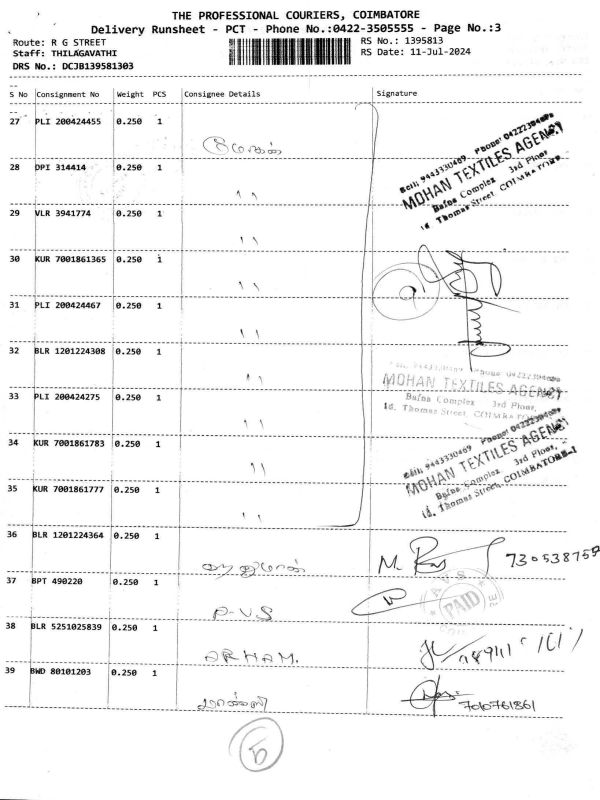 THE PROFESSIONAL COURIERS, COIMBATORE
Delivery Runsheet - PCT - Phone No.:0422-3505555 - Page No.:3
Route: R G STREET
Staff: THILAGAVATHI
DRS No.: DCJB139581303
RS No.: 1395813
RS Date: 11-Jul-2024
S No Consignment No Weight PCS Consignee Details Signature
27 PLI 200424455 0.250 1
28 DPI 314414 0.250 1
29 VLR 3941774 0.250 1
30 KUR 7001861365 0.250 1
31 PLI 200424467 0.250 1
32 BLR 1201224308 0.250 1
33 PLI 200424275 0.250 1
34 KUR 7001861783 0.250 1
35 KUR 7001861777 0.250 1
36 BLR 1201224364 0.250 1
37 BPT 490220 0.250 1
P.V.S
38 BLR 5251025839 0.250 1
ARHAM.
39 BWD 80101203 0.250 1
Cell: 9443330469 Phone: 0422
MOHAN TEXTILES AGENCY
Bafna Complex 3rd Floor,
Thomas Street, COIMBATORE
MOHAN TEXTILES AGENCY
Bafna Complex 3rd Floor,
Thomas Street,
Cell: 9443330469 Phone: 0422
MOHAN TEXTILES AGENCY
Bafna Complex 3rd Floor,
Thomas Street, COIMBATORE-1
PAID
7010761861
5